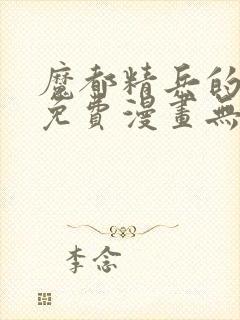 魔都精兵的
免費漫畫無
李念